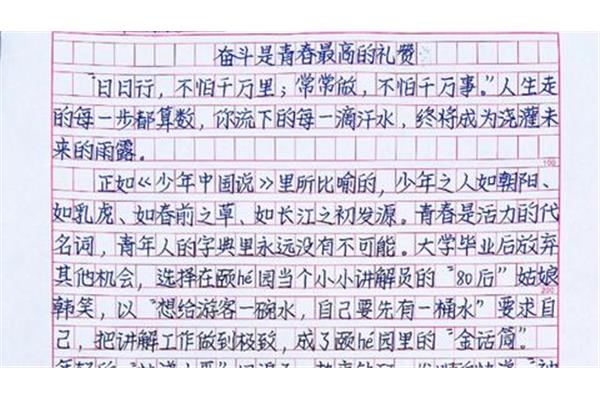 奋斗是青春最高的礼赞
“日日行，不怕千万里；常常做，不怕千万事。”人生走
的每一步都算数，你流下的每一滴汗水，终将成为浇灌未
来的雨露。
100
正如《少年中国说》里所比喻的，少年之人如朝阳、
如乳虎、如春前之草、如长江之初发源。青春是活力的代
名词，青年人的字典里永远没有不可能。大学毕业后放弃
其他机会，选择在颐hé园当个小小讲解员的“80后”姑娘
200
韩笑，以“想给游客一碗水，自己要先有一桶水”要求自
己，把讲解工作做到极致，成了颐hé园里的“金话筒”。